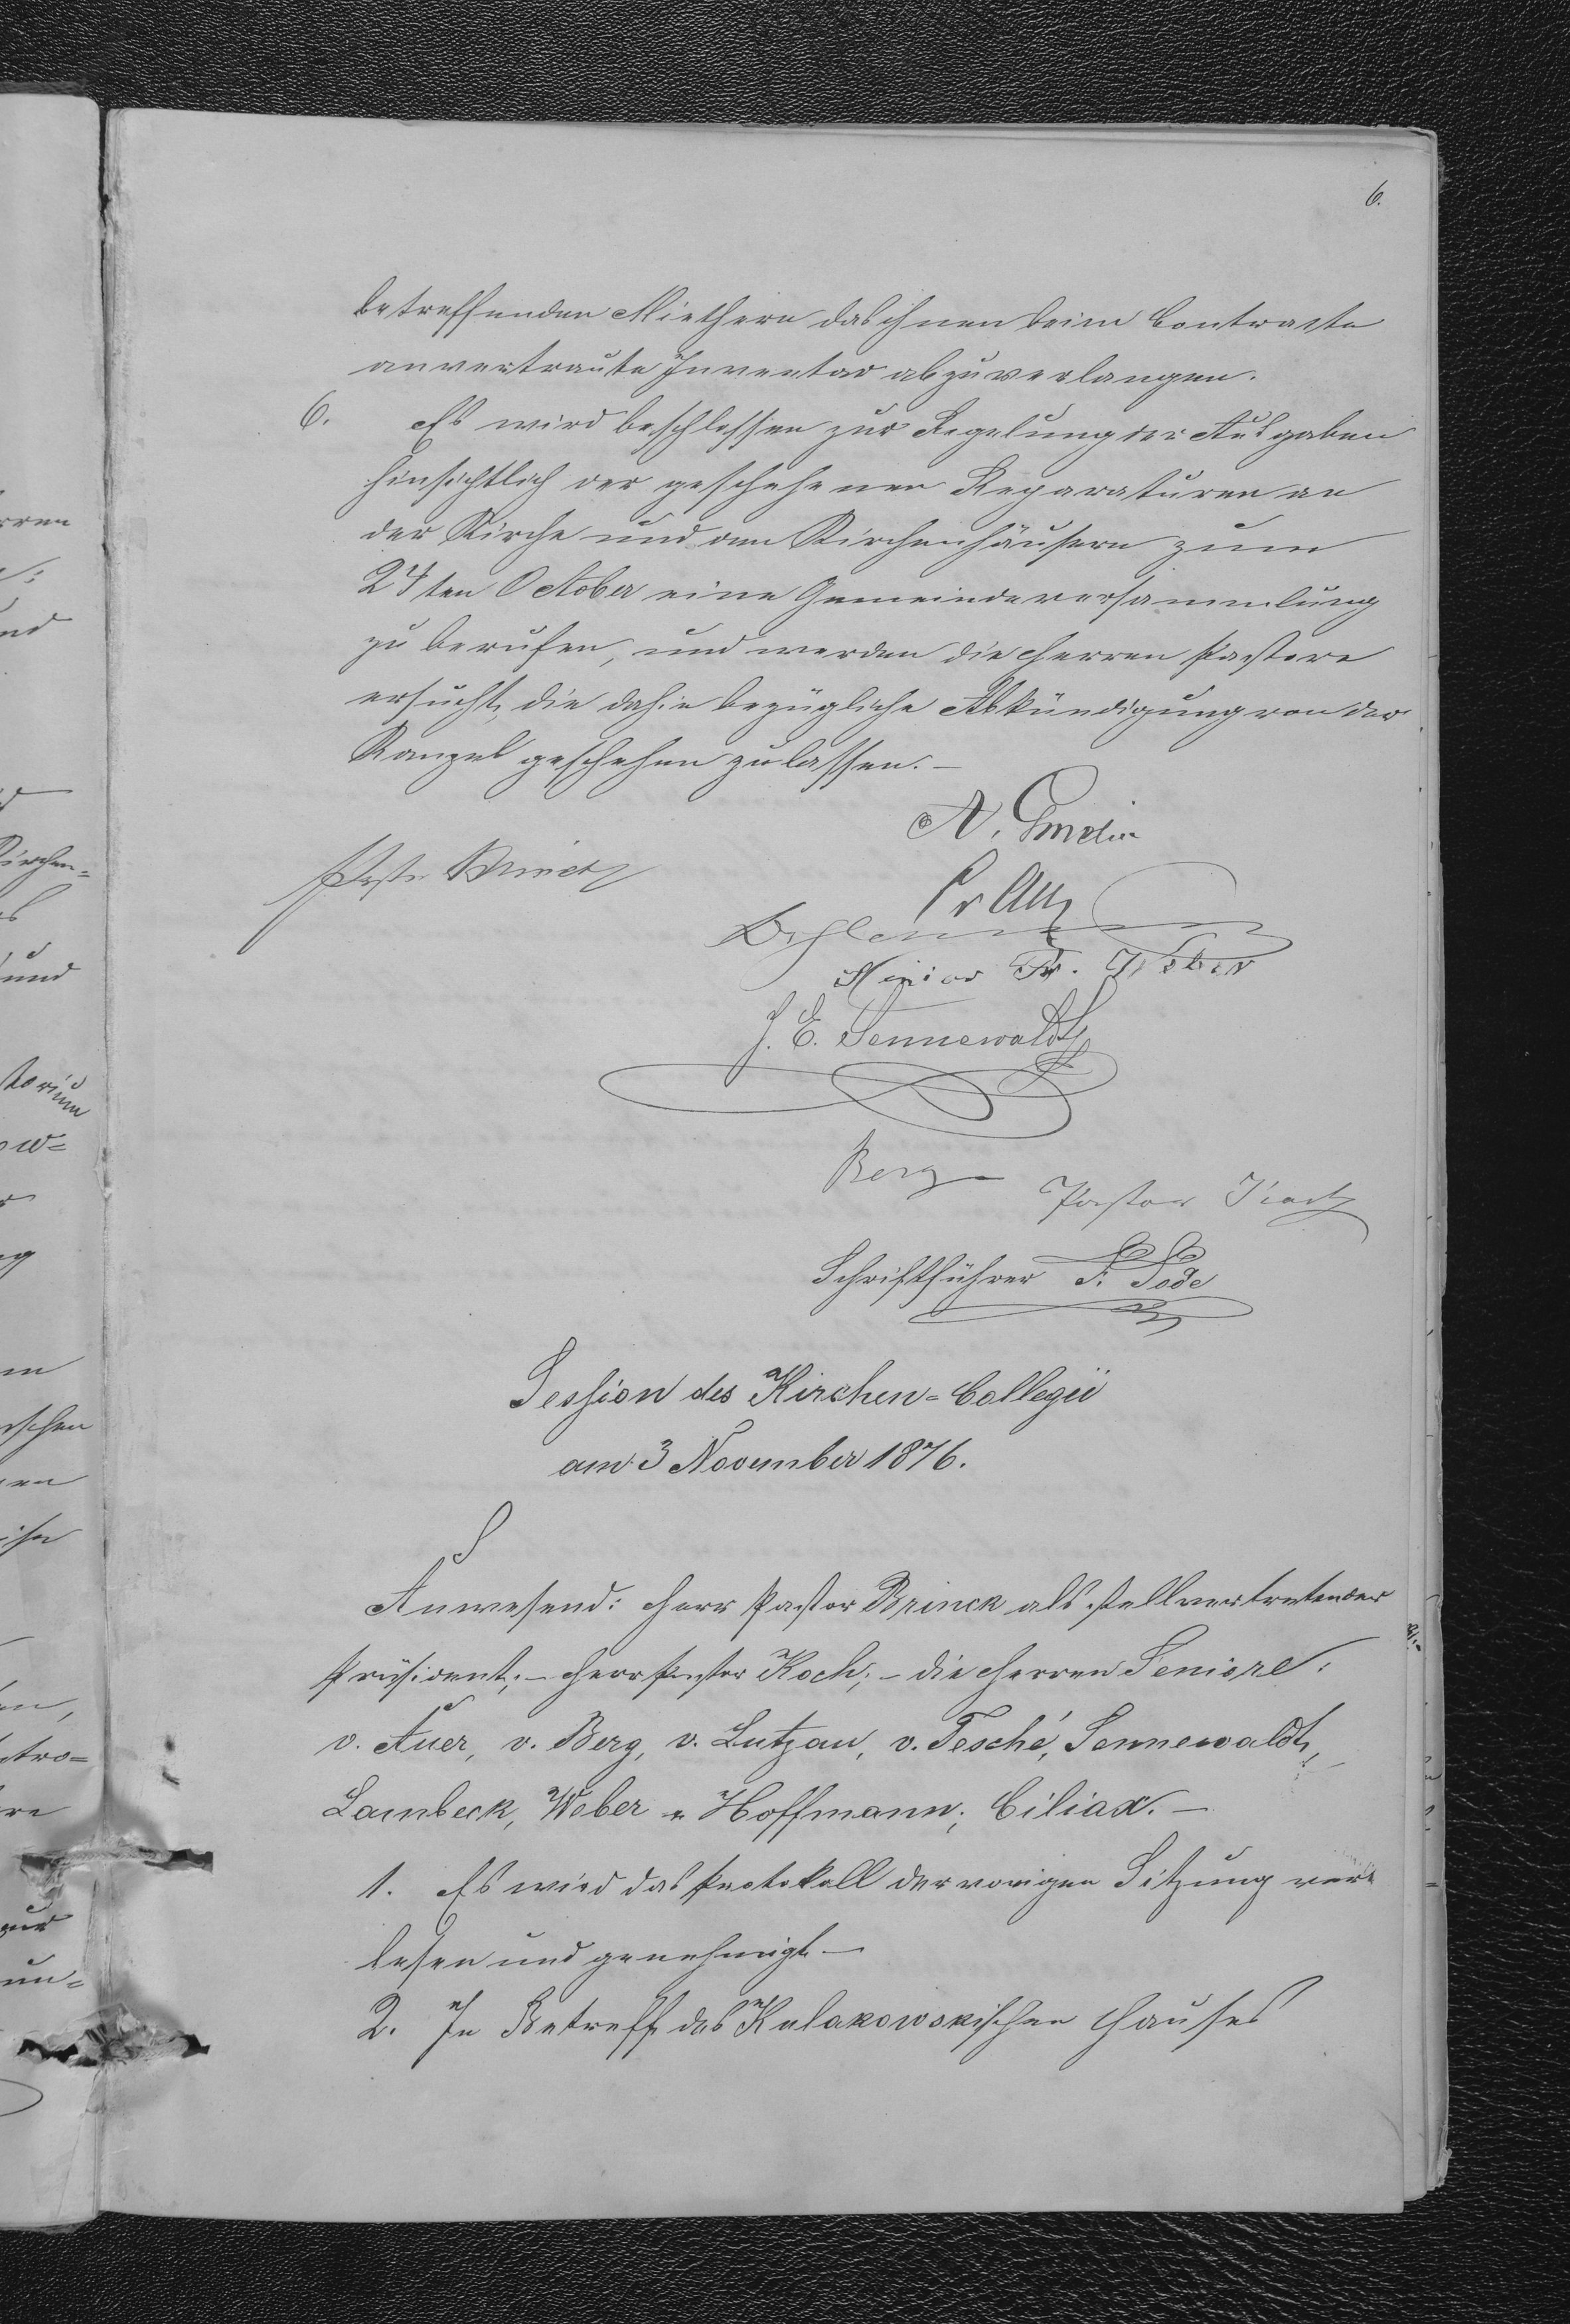 6.
betreffenden Miethern das ihnen beim Contracte
anvertraute Inventar abzuverlangen.
6. Es wird beschlossen zur Regelung der Ausgaben
hinsichtlich der geschehenen Reparaturen an
der Kirche und den Kirchenhäusern zum
24ten October eine Gemeindeversammlung
zu berufen, und werden die Herren Pastore
ersucht, die dahin bezügliche Abkündigung von der
Kanzel geschehen zu lassen. —
A.
Past. Brinck
Senior Fr. Weber
J. E. Sennewaldt
Berg
Pastor Koch
Schriftführer F. Tode
Session des Kirchen-Collegii
am 3 November 1876.
Anwesend: Herr Pastor Brinck als stellvertretender
Präsident; – Herr Pastor Koch; – die Herren Seniore:
v. Auer, v. Berg, v. Lutzau, v. Tesché, Sennewaldt,
Lambeck, Weber u Hoffmann; Ciliax. —
1. Es wird das Protokoll der vorigen Sitzung ver-
lesen und genehmigt. —
2. In Betreff des Kulakowskischen Hauses